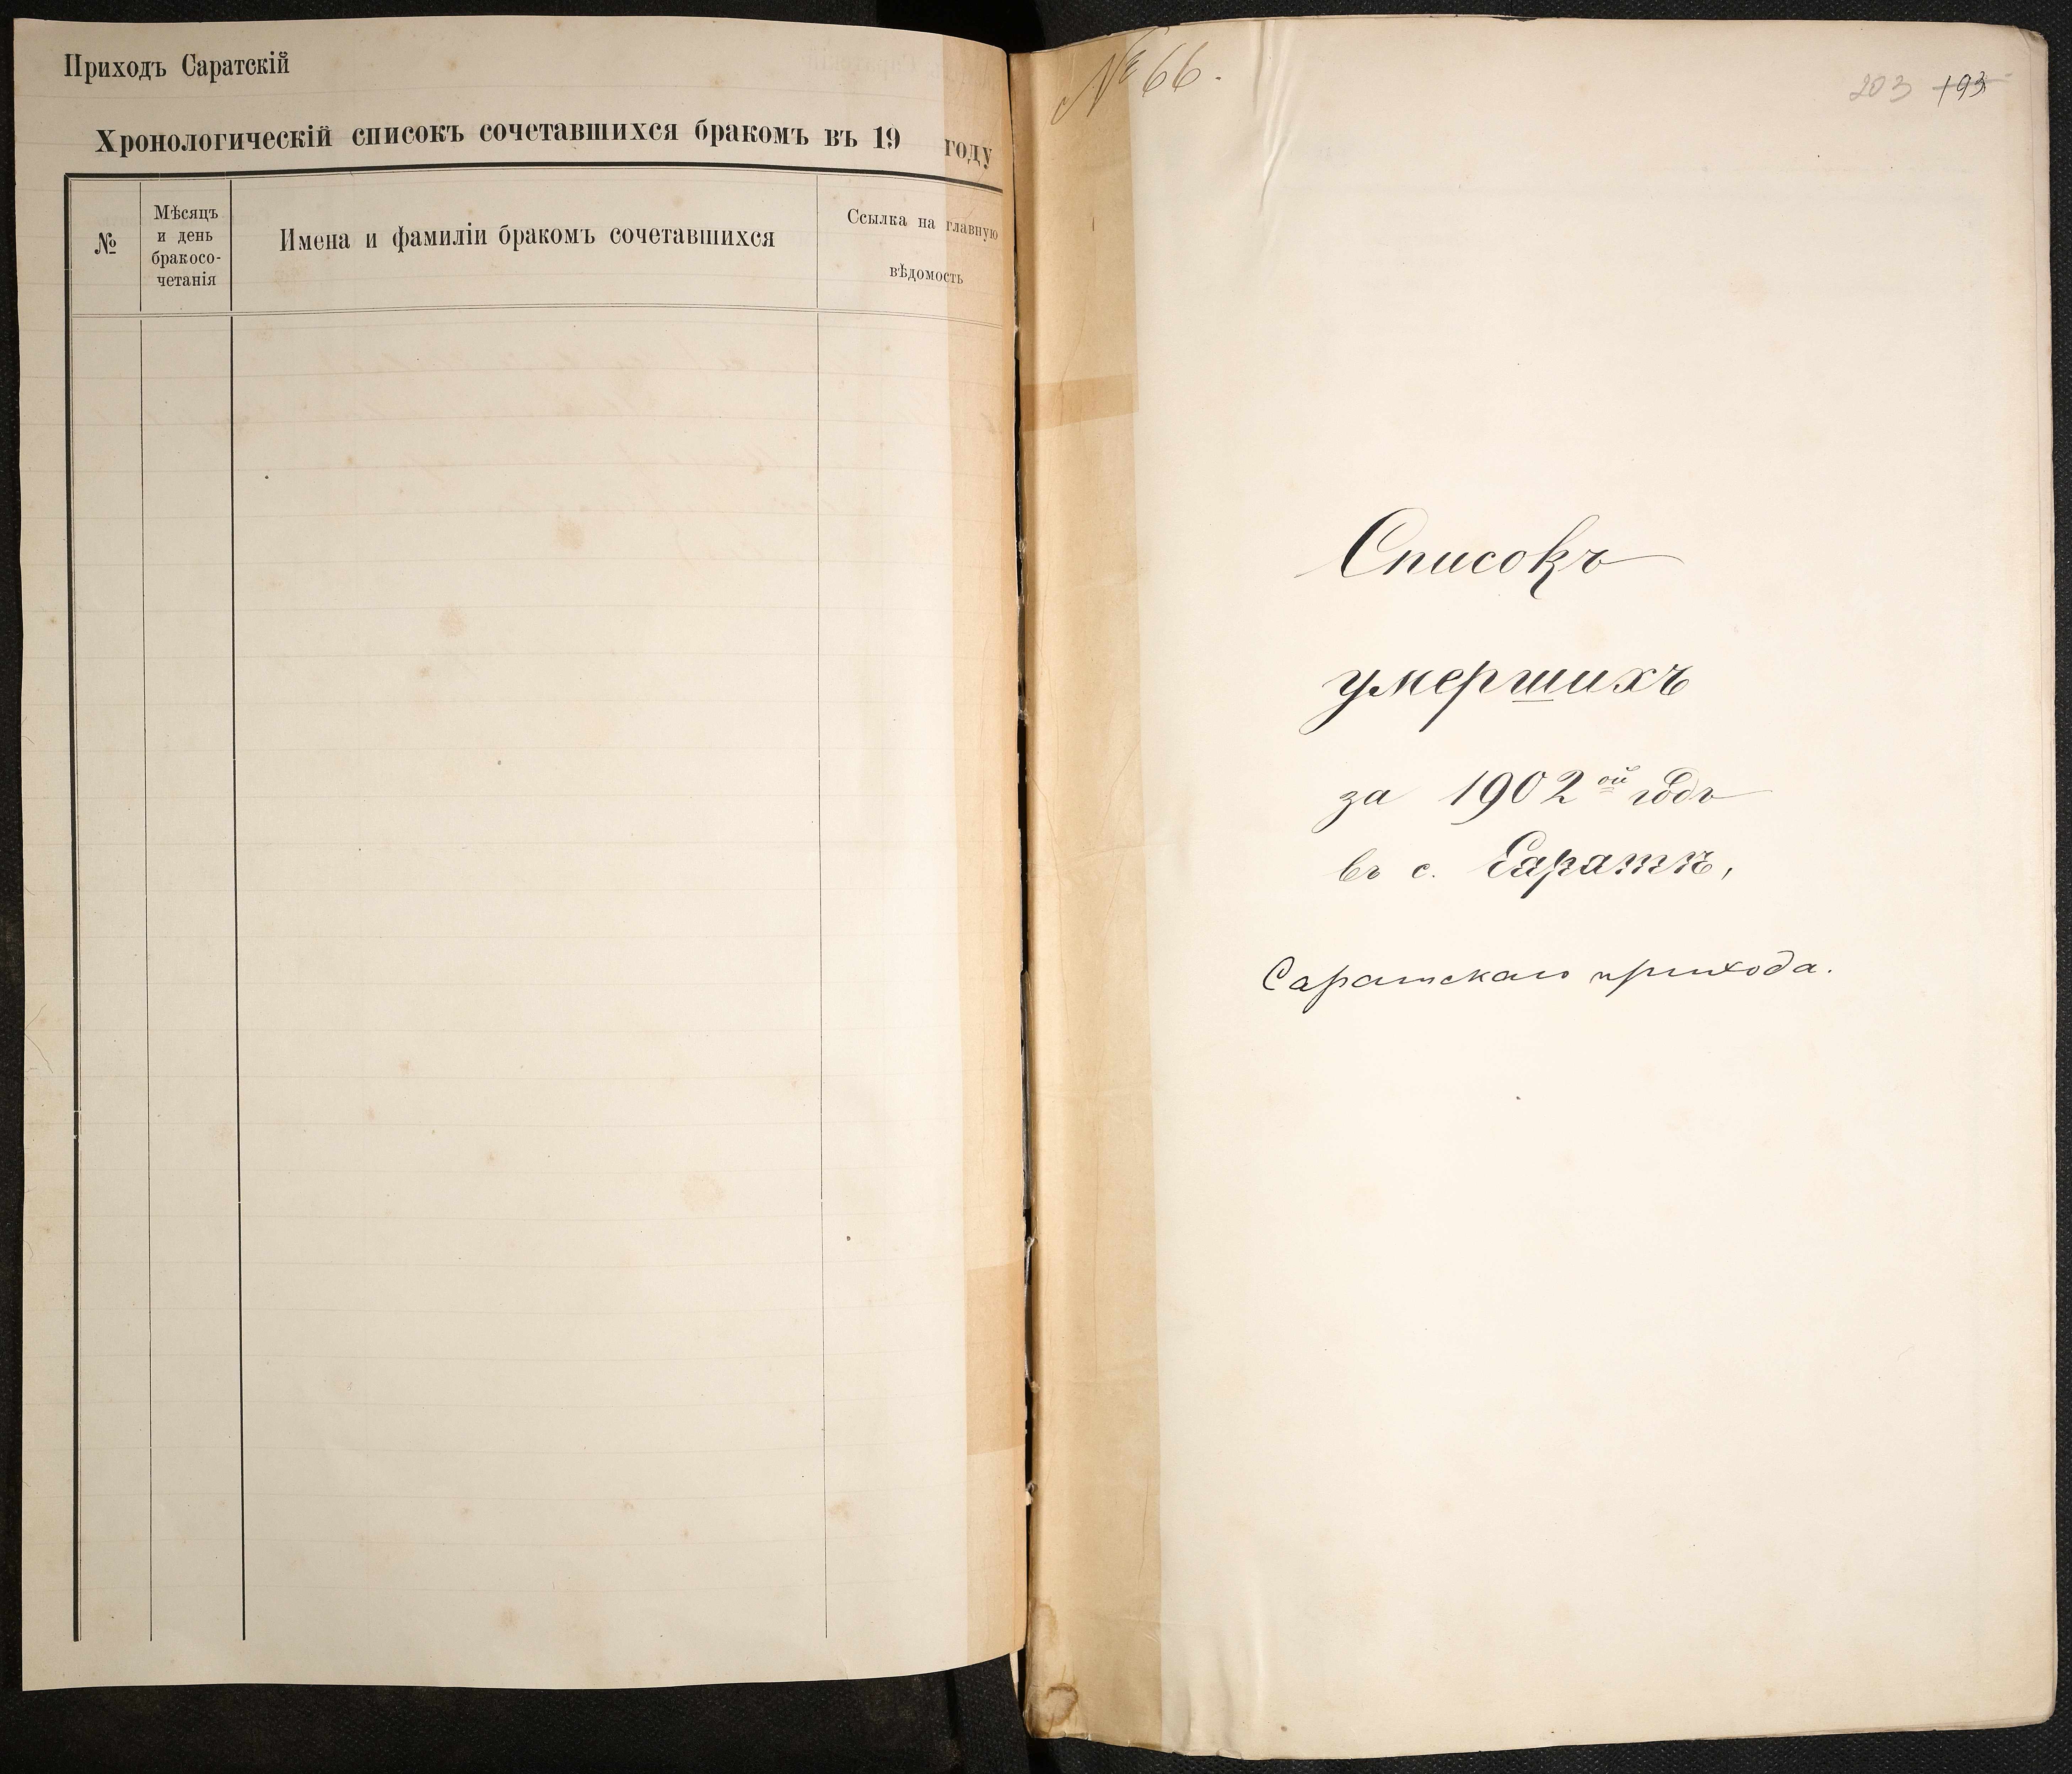 Приходъ Саратскій
Хронологическій списокъ сочетавшихся бракомъ въ 19 году
№
Мѣсяцъ
и день
бракосо-
четанія
Имена и фамиліи бракомъ сочетавшихся
Ссылка на главную
вѣдомость
№ 66.
203 193
Списокъ
умершихъ
за 1902ой годъ
въ с. Саратѣ,
Саратскаго прихода.